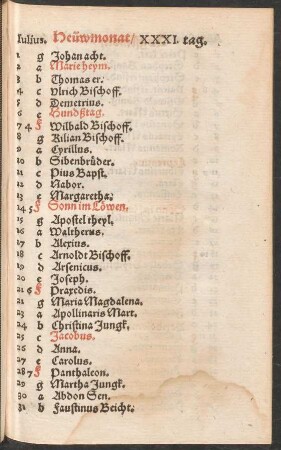 Iulius. Heüwmonat/ XXXI. tag.
1 g Johan acht.
2 a Marie heym.
3 b Thomas er.
4 c Vlrich Bischoff.
5 d Demetrius.
6 e Hundßtag.
7 4 f Wilbald Bischoff.
8 g Kilian Bischoff.
9 a Cyrillus.
10 b Sibenbrüder.
11 c Pius Bapst.
12 d Nabor.
13 e Margaretha.
14 5 f Sonn im Löwen.
15 g Apostel theyl.
16 a Waltherus.
17 b Alexius.
18 c Arnoldt Bischoff.
19 d Arsenicus.
20 e Joseph.
21 6 f Praxedis.
21 g Maria Magdalena.
23 a Apollinaris Mart.
24 b Christina Jungk.
25 c Jacobus.
26 d Anna.
27 e Carolus.
28 7 f Panthaleon.
29 g Martha Jungk.
30 a Abdon Sen.
31 b Faustinus Beicht.